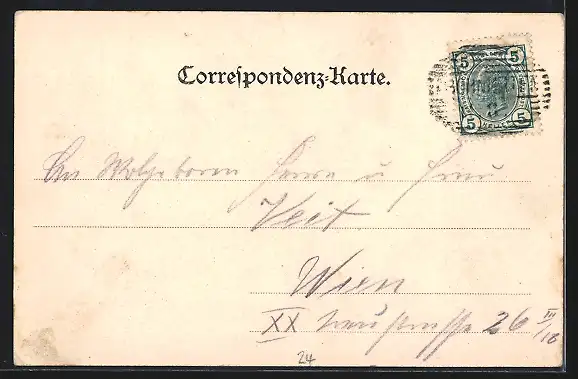 Correspondenz-Karte.
5 5
5 5
An Wolgeboren Herrn u Frau
Veit
Wien
XX 26 III/18
24